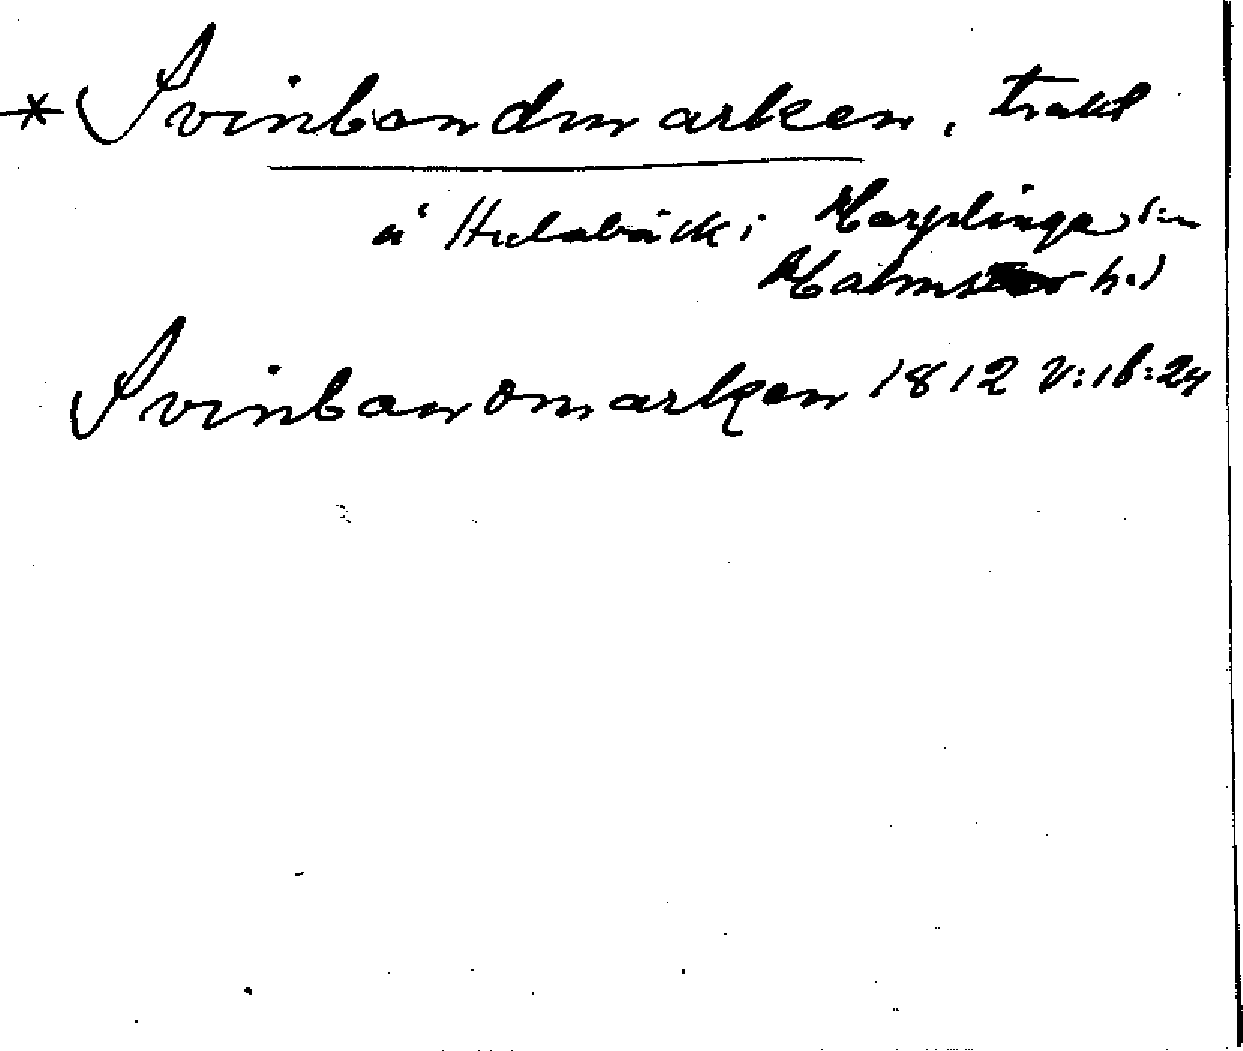 * Svinbandmarken, trakt
å Hulabäck i Harplinge sn
Halmst h.d
Svinbandmarken 1812 V:16:24